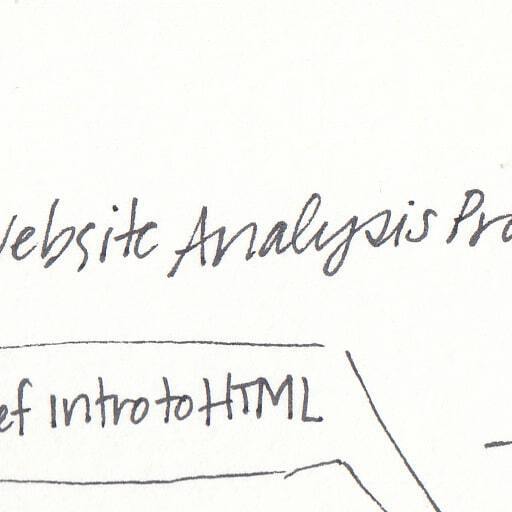 Website Analysis Pro
ef Intro to HTML